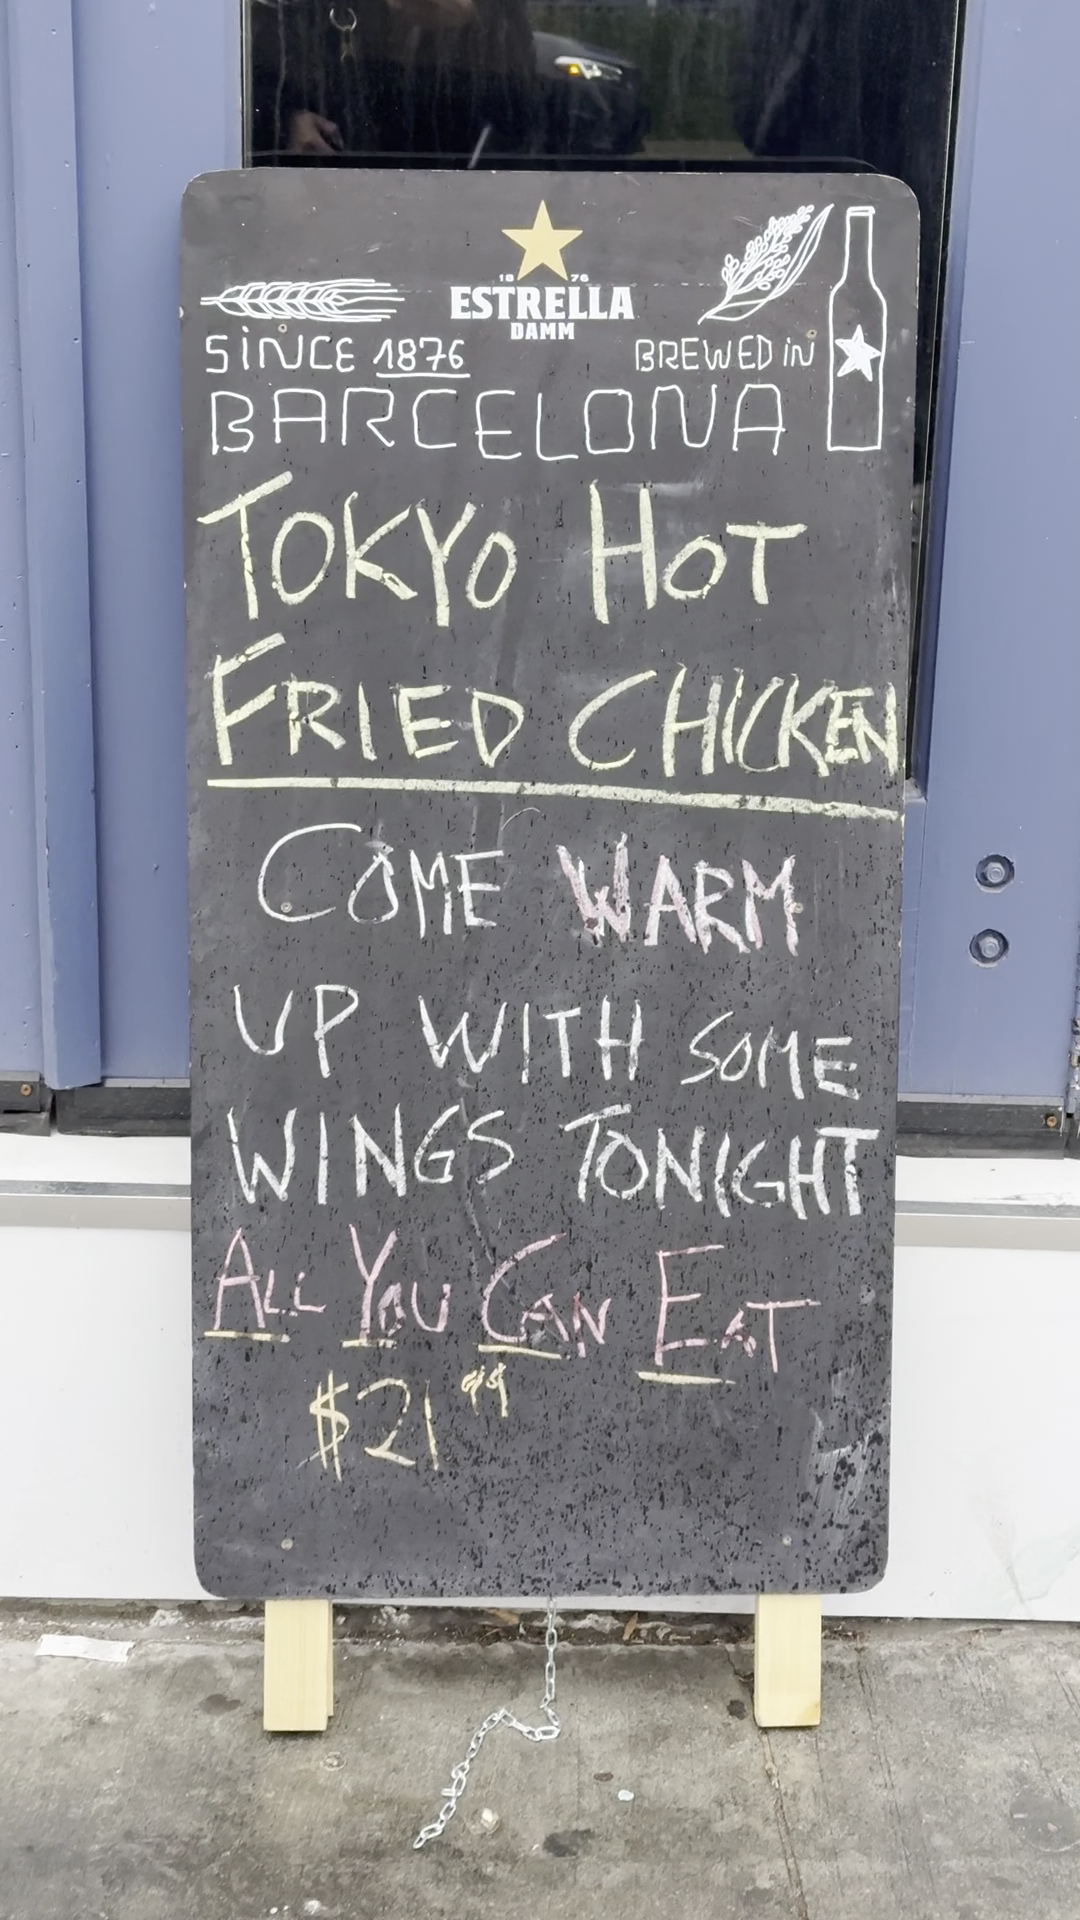 18 76
ESTRELLA
DAMM
SINCE 1876
BREWED IN
BARCELONA
TOKYO HOT
FRIED CHICKEN
COME WARM
UP WITH SOME
WINGS TONIGHT
ALL YOU CAN EAT
$21 99